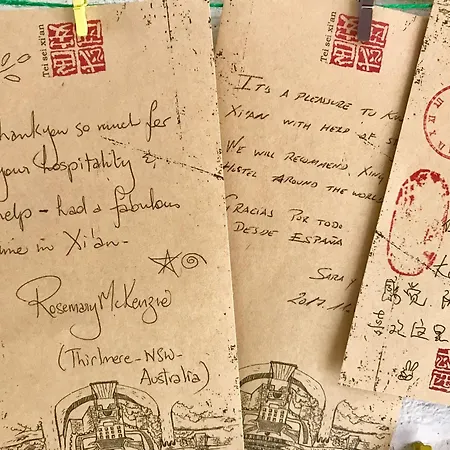 Tei sei xi'an
Thankyou so much for
your hospitality &
help - had a fabulous
time in Xi'an -
Rosemary McKenzie
(Thirlmere - NSW -
Australia)
Tei sei xi'an
IT'S A PLEASURE TO
XI'AN WITH HELP OF
WE WILL RECOMMEND XING
HOSTEL AROUND THE WORLD
GRACIAS POR TODO
DESDE ESPAÑA
SARA Y
2017.11.
感觉
这里